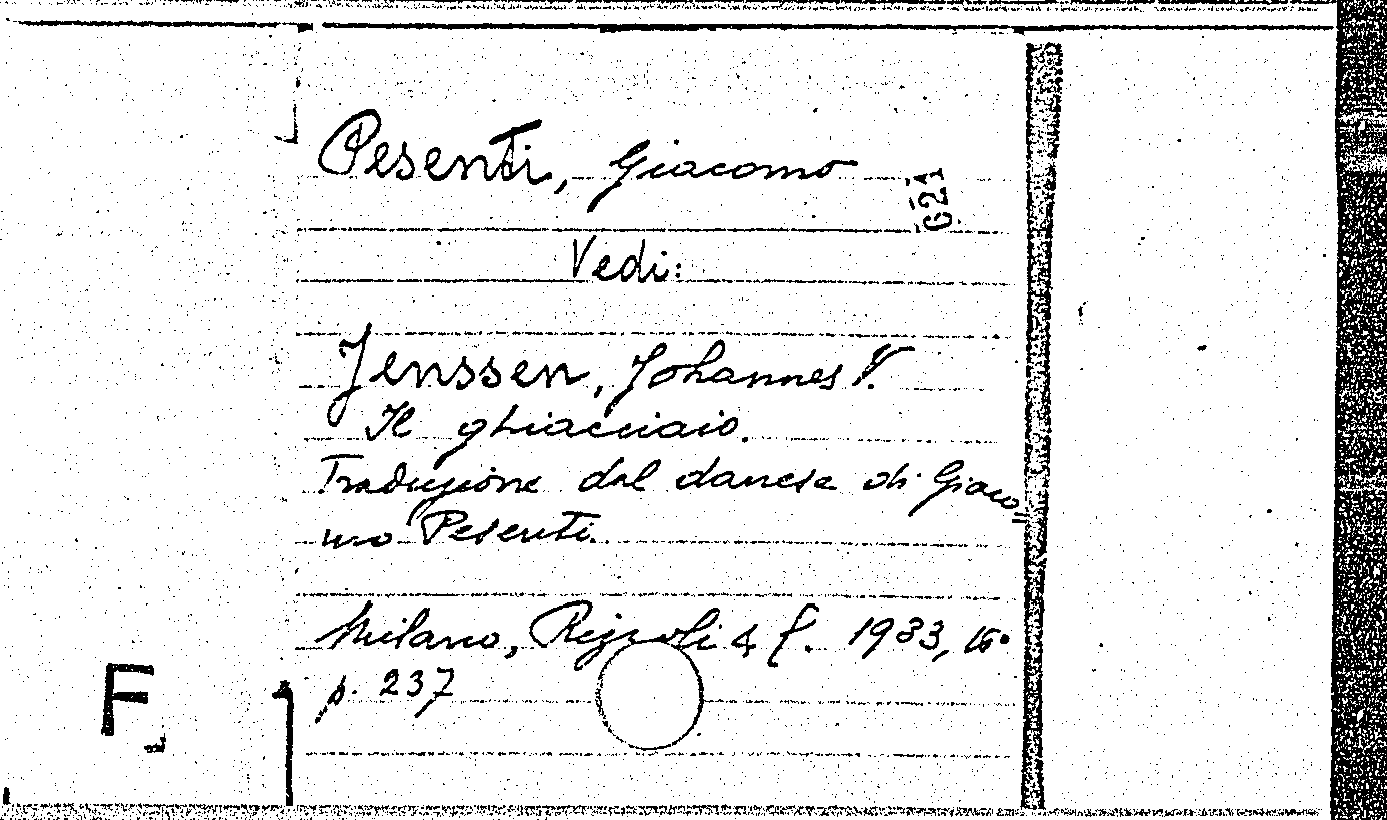 Pesenti, Giacomo
621
Vedi:
Jenssen, Johannes V.
Il ghiacciaio.
Traduzione dal danese di Giaco=
mo Pesenti.
Milano, Rizzoli & C. 1933, 16°
p. 237
F